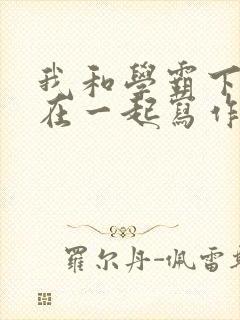 我和學霸下
在一起寫作
羅尔丹-佩雷